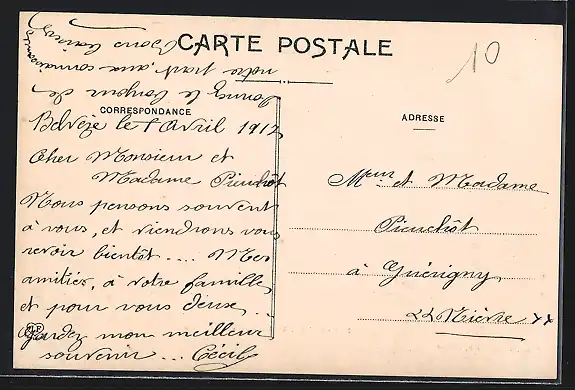 CARTE POSTALE
10
CORRESPONDANCE
ADRESSE
Belvèze le 1 Avril 1912
Cher Monsieur et
Madame Pieuchôt
Nous pensons souvent
à vous, et viendrons vous
revoir bientôt .... Mes
amitiés, à votre famille,
et pour vous deux ...
Gardez mon meilleur
souvenir ... Cécile
Donnez le bonjour de
notre part, aux connaissances
Bons baisers
Mr et Madame
Pieuchôt
à Guérigny
Nièvre